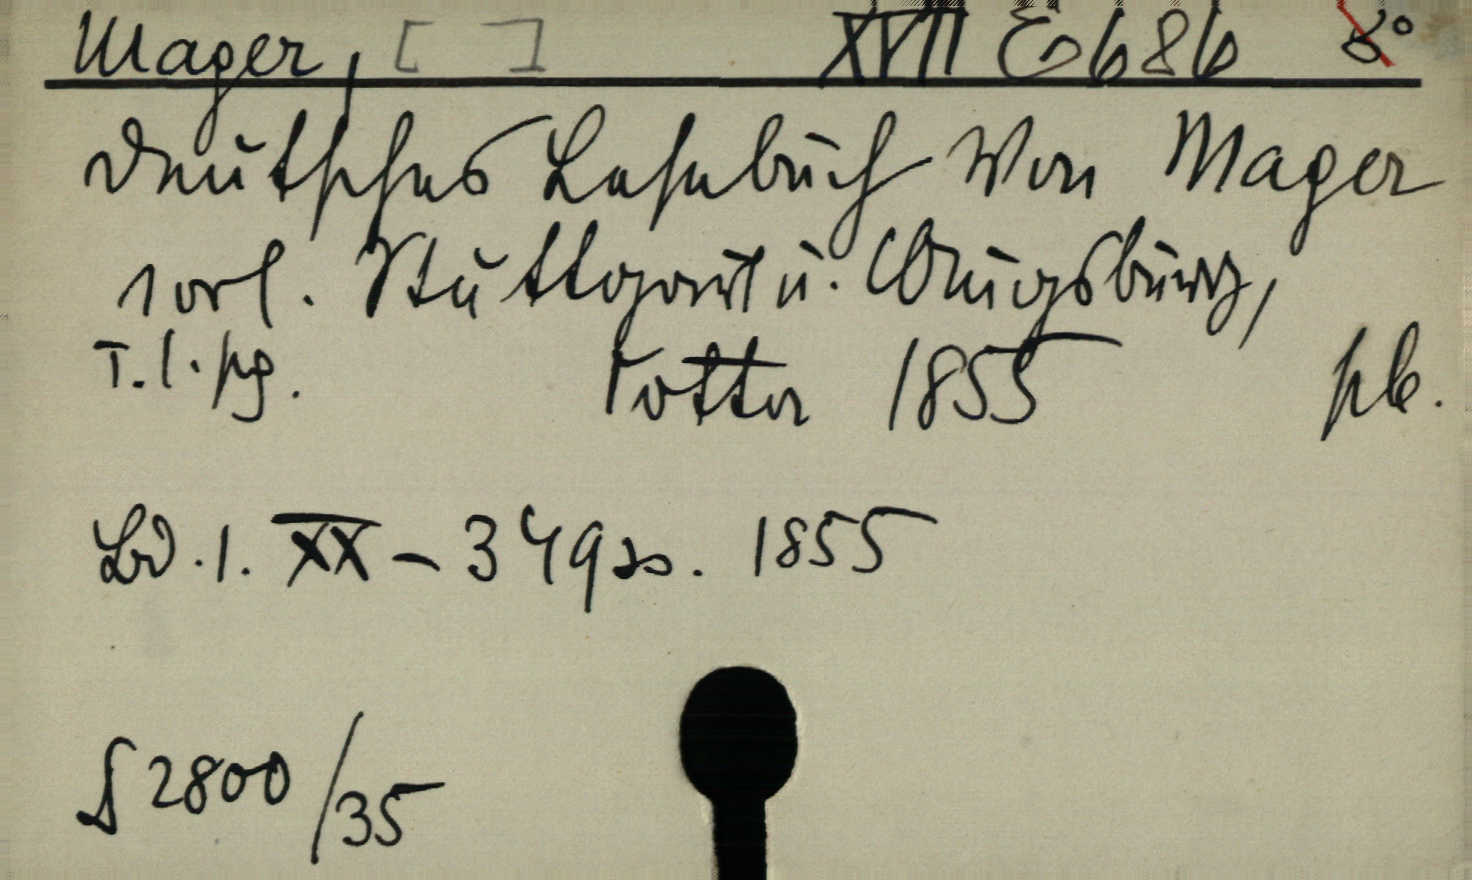 Mager, [ ] XVII E 686 8°
Deutsches Lesebuch Von Mager
Stuttgart u. Augsburg,
T. l. pg. Cotta 1855
Bd. 1. XX – 349 s. 1855
2800/35